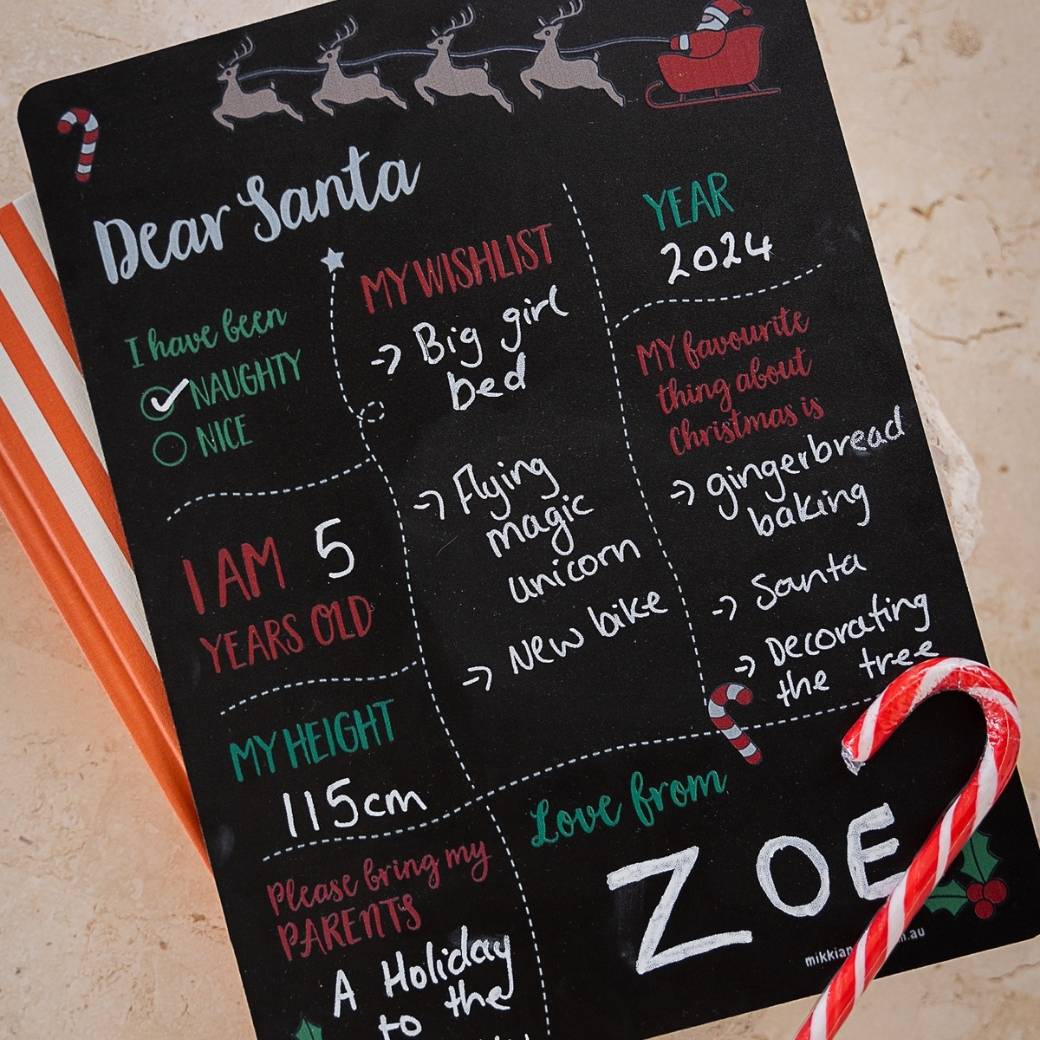 Dear Santa
I have been
NAUGHTY
NICE
I AM 5
YEARS OLD
MY HEIGHT
115cm
Please bring my
PARENTS
A Holiday
to the
MY WISHLIST
-> Big girl
bed
-> Flying
magic
unicorn
-> New bike
YEAR
2024
MY favourite
thing about
Christmas is
-> gingerbread
baking
-> Santa
-> Decorating
the tree
Love from
ZOE